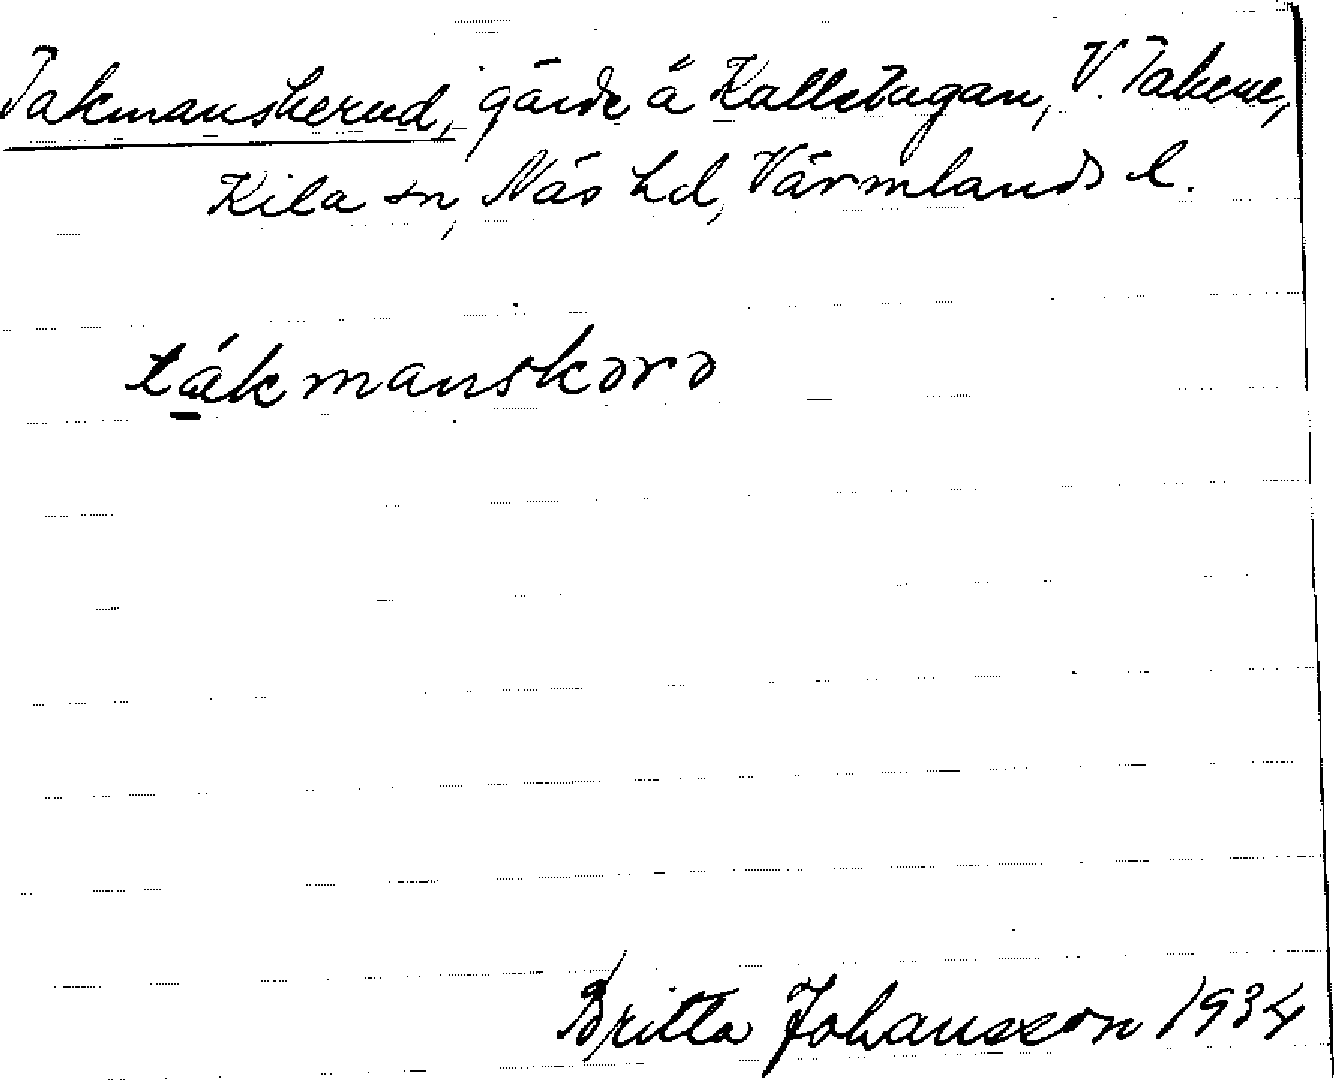 Takmanskerud, gärde å Kalletugan, V. Takene,
Kila sn, Näs hd, Värmlands l.
tákmanskərə
Britta Johansson 1934